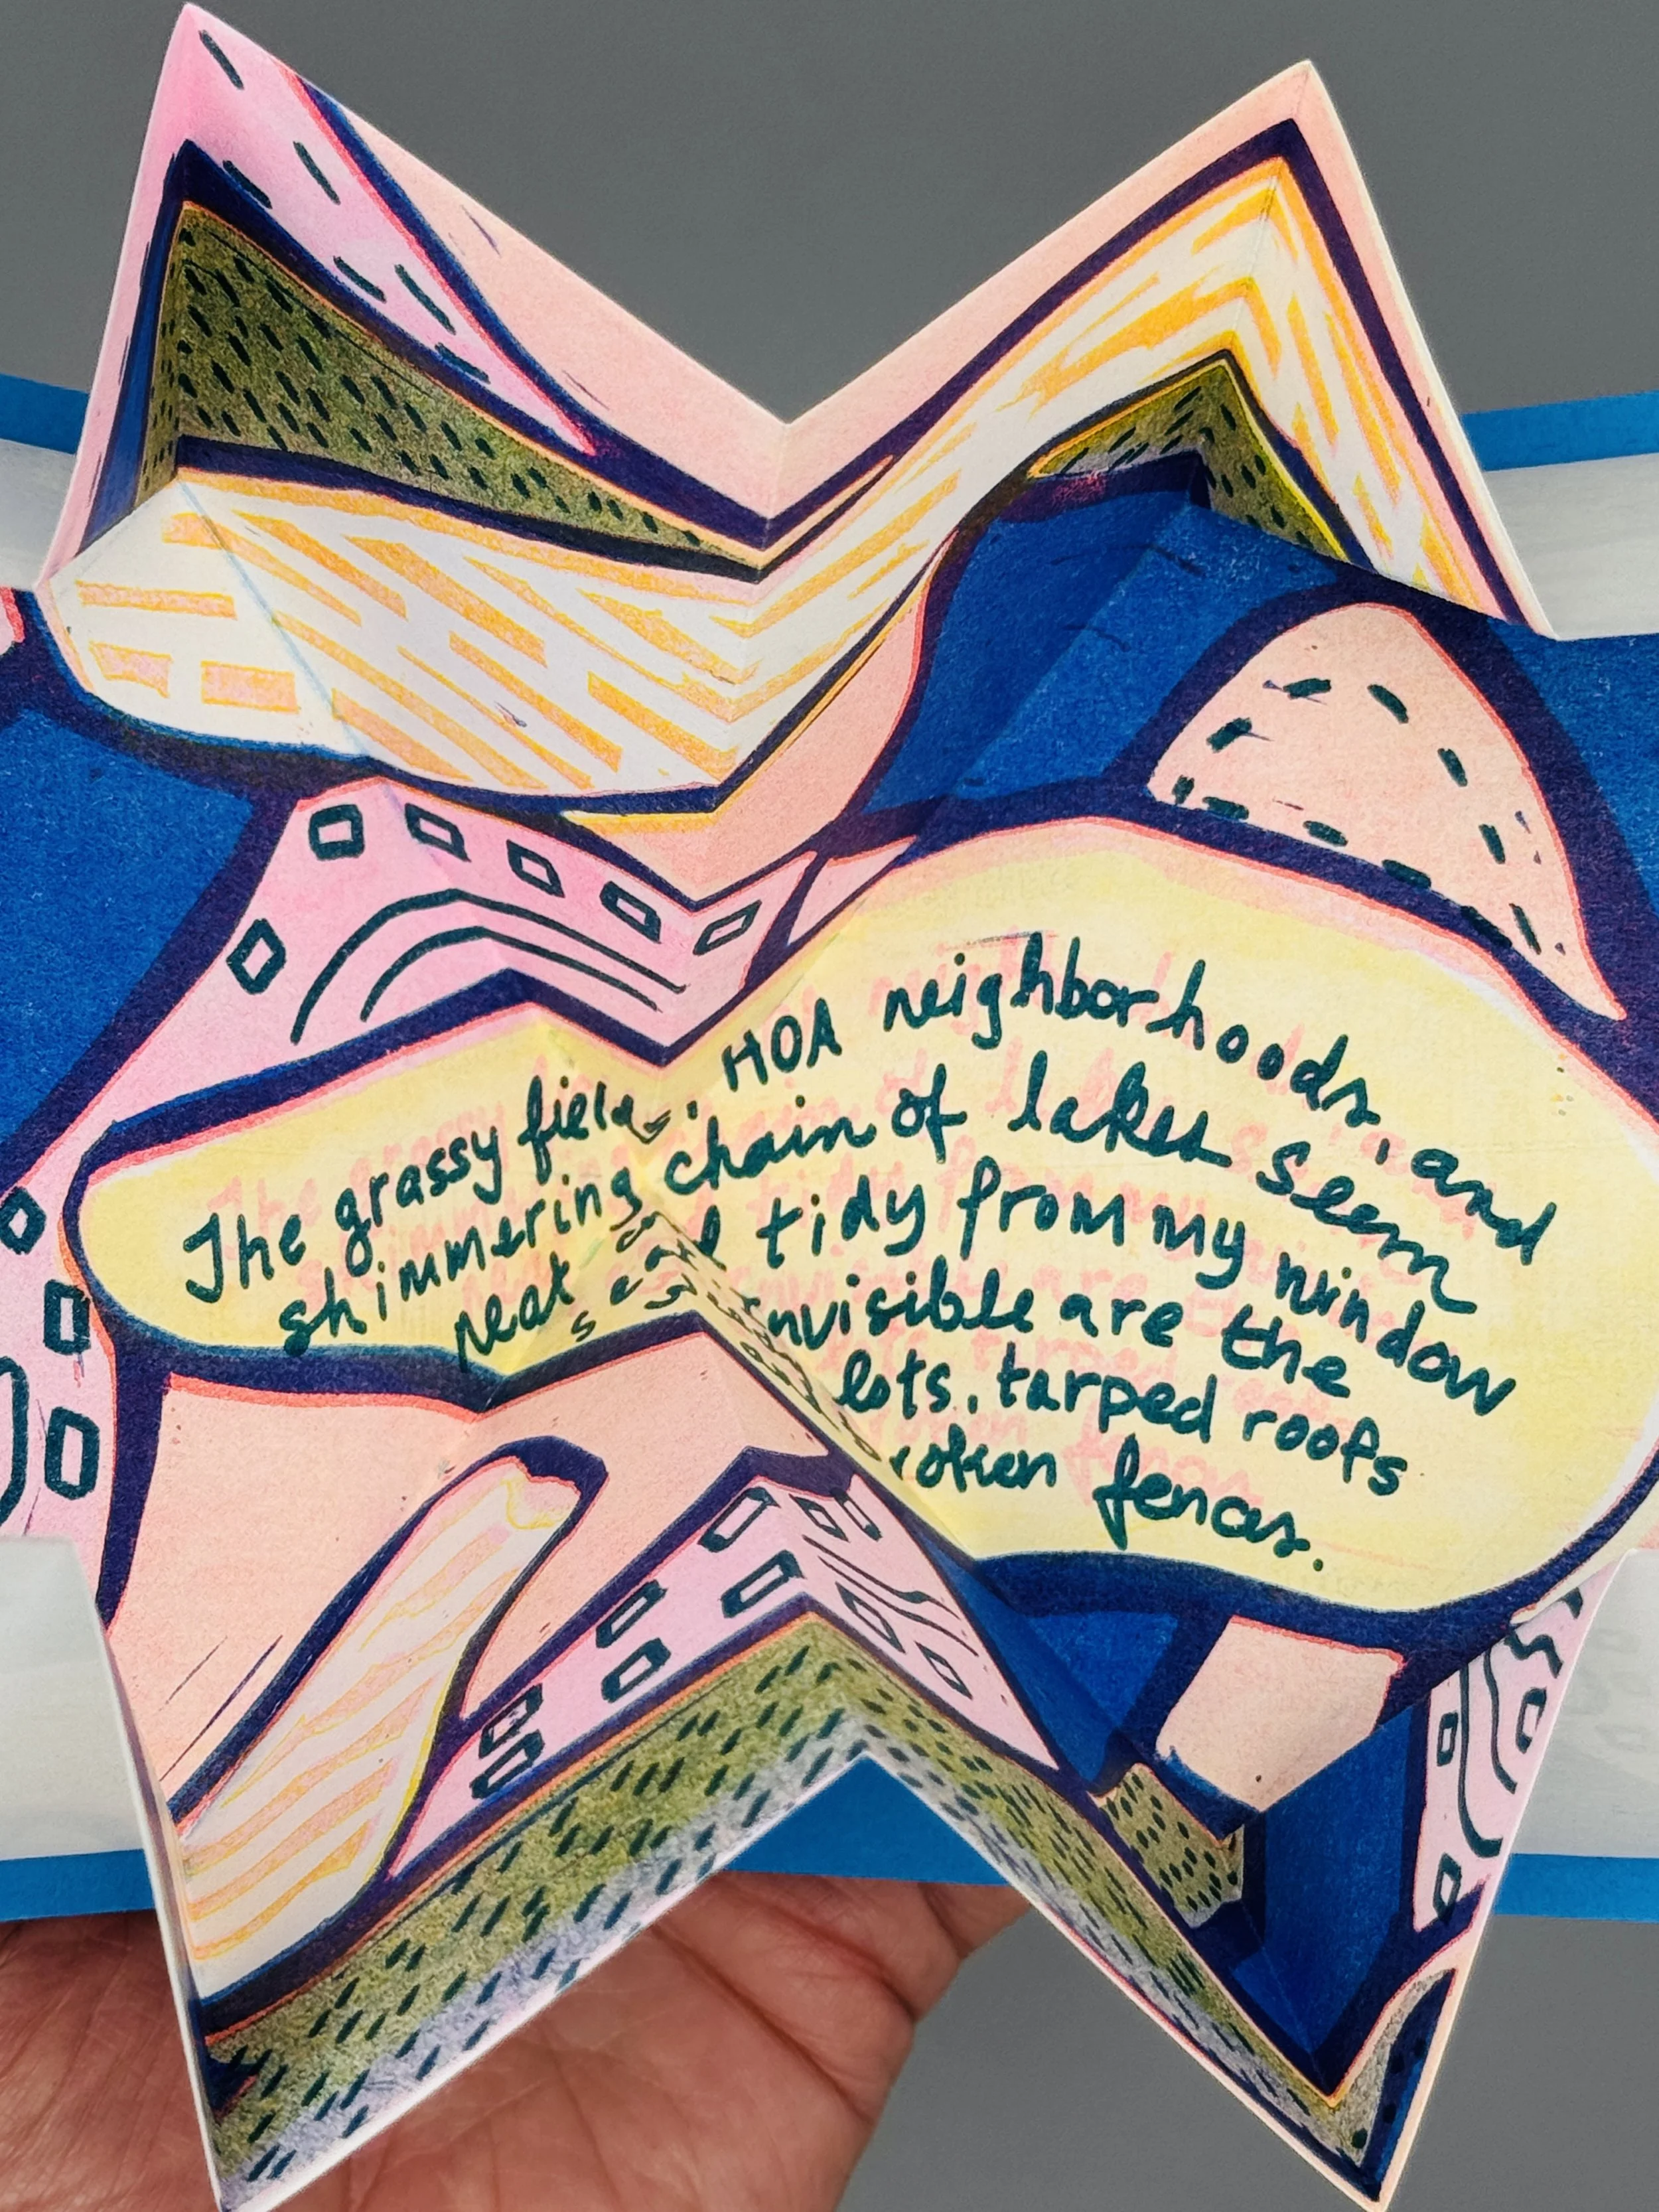 The grassy fields, HOA neighborhoods, and
shimmering chain of lakes seem
neat and tidy from my window
invisible are the
lots, tarped roofs
fences.